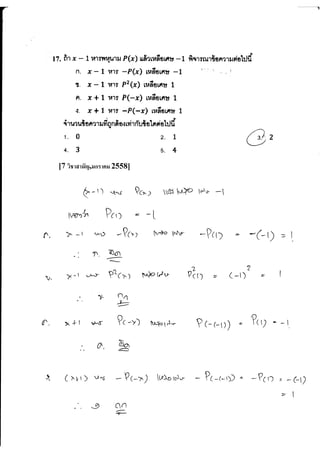 17. ถ้า x − 1 หารพหุนาม P(x) แล้วเหลือเศษ −1 พิจารณาข้อความต่อไปนี้
ก. x − 1 หาร −P(x) เหลือเศษ −1
ข. x − 1 หาร P²(x) เหลือเศษ 1
ค. x + 1 หาร P(−x) เหลือเศษ 1
ง. x + 1 หาร −P(−x) เหลือเศษ 1
จำนวนข้อความที่ถูกต้องเท่ากับข้อใดต่อไปนี้
1. 0 2. 1
3. 4. 3 5. 4
② 2
[7 วิชาสามัญ,มกราคม 2558]
(x-1) หาร P(x) แล้วเหลือเศษ -1
P(1) = -1
ก. x-1 หาร -P(x) เหลือเศษ -P(1) = -(-1) = 1
∴ ก. ผิด
ข. x-1 หาร P²(x) เหลือเศษ P²(1) = (-1)² = 1
∴ ข ถูก
ค. x+1 หาร P(-x) เหลือเศษ P(-(-1)) = P(1) = -1
∴ ค. ผิด
ง. (x+1) หาร -P(-x) เหลือเศษ -P(-(-1)) = -P(1) = -(-1)
= 1
∴ ง ถูก